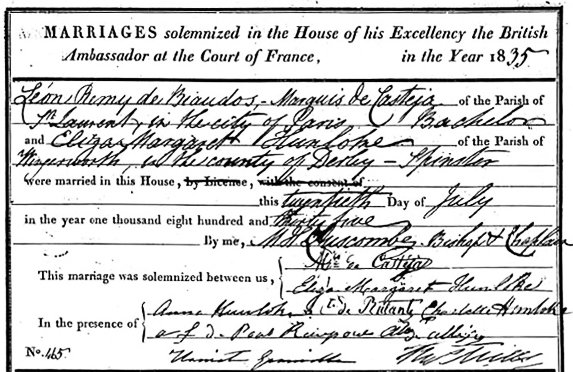 MARRIAGES solemnized in the House of his Excellency the British
Ambassador at the Court of France, in the Year 1835.
Léon Remy de Biaudos, - Marquis de Casteja of the Parish of
St Laurent, in the city of Paris, Bachelor
and Eliza Margaret Hunloke of the Parish of
Wingerworth, in the county of Derby - Spinster
were married in this House, by Licence, with the consent of
this twentieth Day of July
in the year one thousand eight hundred and thirty five
By me, Luscombe Bishop & Chaplain
This marriage was solemnized between us,
Mis de Casteja
Eliza Margaret Hunloke
In the presence of
Anna Hunloke de Charlotte Hunloke
de
No. 465 Harriet Granville